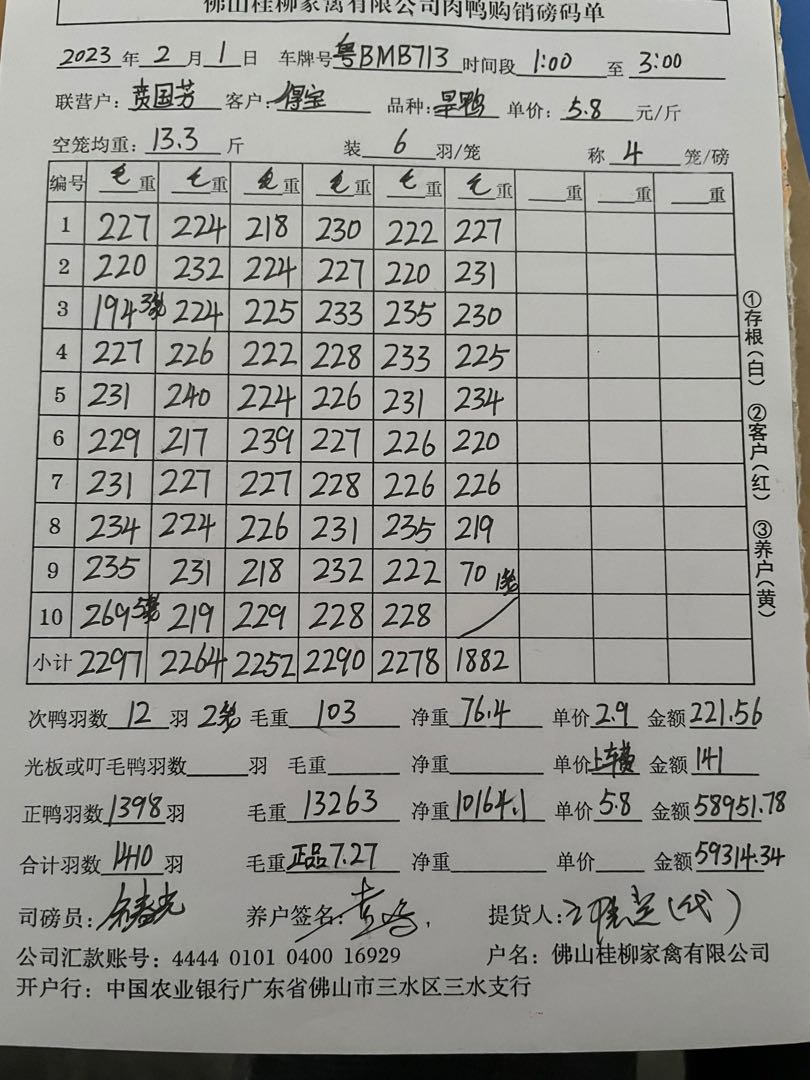 佛山桂柳家禽有限公司肉鸭购销磅码单
2023 年 2 月 1 日 车牌号 粤BMB713 时间段 1:00 至 3:00
联营户: 黄国芳 客户: 得宝 品种: 旱鸭 单价: 5.8 元/斤
空笼均重: 13.3 斤 装 6 羽/笼 称 4 笼/磅
编号 毛重 毛重 毛重 毛重 毛重 毛重 重 重 重
1 227 224 218 230 222 227
2 220 232 224 227 220 231
3 194 3笼 224 225 233 235 230
4 227 226 222 228 233 225
5 231 240 224 226 231 234
6 229 217 239 227 226 220
7 231 227 227 228 226 226
8 234 224 226 231 235 219
9 235 231 218 232 222 70 1笼
10 269 5笼 219 229 228 228
小计 2297 2264 2252 2290 2278 1882
①存根(白) ②客户(红) ③养户(黄)
次鸭羽数 12 羽 2笼 毛重 103 净重 76.4 单价 2.9 金额 221.56
光板或叮毛鸭羽数 羽 毛重 净重 单价 上车费 金额 141
正鸭羽数 1398 羽 毛重 13263 净重 10164.1 单价 5.8 金额 58951.78
合计羽数 1410 羽 毛重 正品7.27 净重 单价 金额 59314.34
司磅员: 养户签名: 提货人: (代)
公司汇款账号: 4444 0101 0400 16929 户名: 佛山桂柳家禽有限公司
开户行: 中国农业银行广东省佛山市三水区三水支行